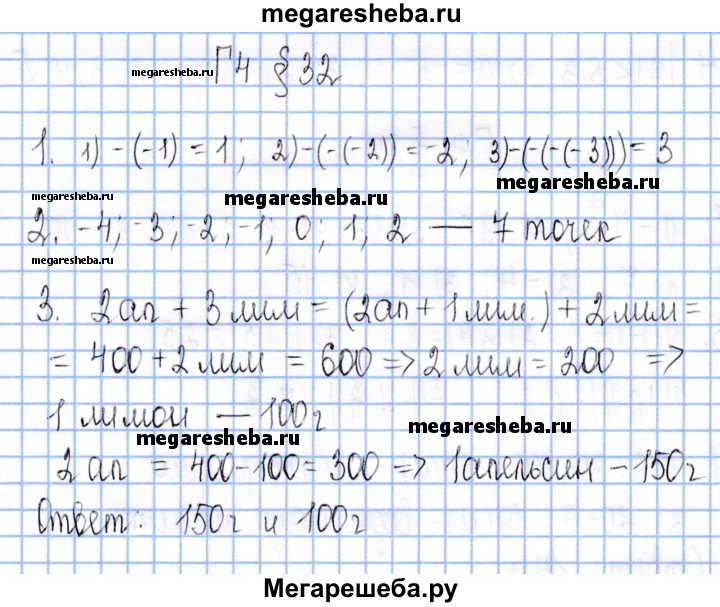 megaresheba.ru
megaresheba.ru Г4 § 32
1. 1) -(-1) = 1; 2) -(-(-2)) = -2; 3) -(-(-(-3))) = 3
megaresheba.ru megaresheba.ru megaresheba.ru
2. -4; -3; -2; -1; 0; 1; 2 — 7 точек
megaresheba.ru
3. 2 ап + 3 лим = (2 ап + 1 лим.) + 2 лим =
= 400 + 2 лим = 600 => 2 лим = 200 =>
1 лимон — 100 г
megaresheba.ru megaresheba.ru
2 ап = 400-100 = 300 => 1 апельсин - 150 г
Ответ: 150 г и 100 г
Мегарешеба.ру